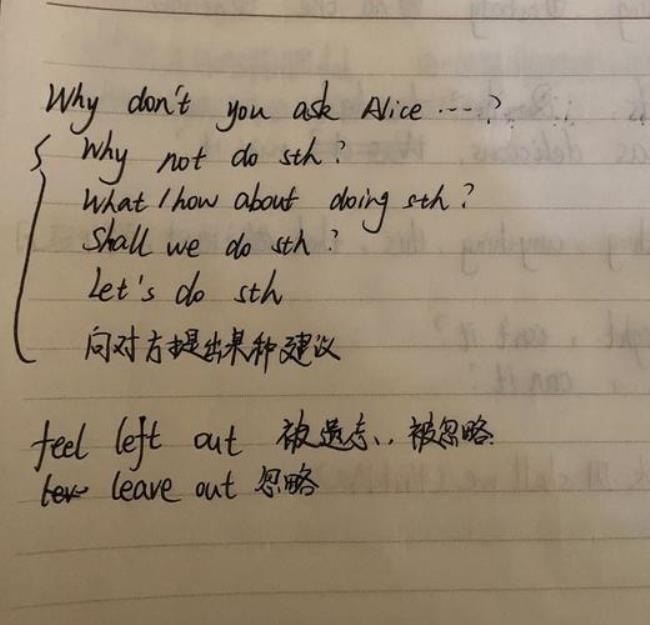 Why don't you ask Alice ...?
Why not do sth?
What / how about doing sth?
Shall we do sth?
Let's do sth
向对方提出某种建议
feel left out 被遗忘、被忽略
leave out 忽略